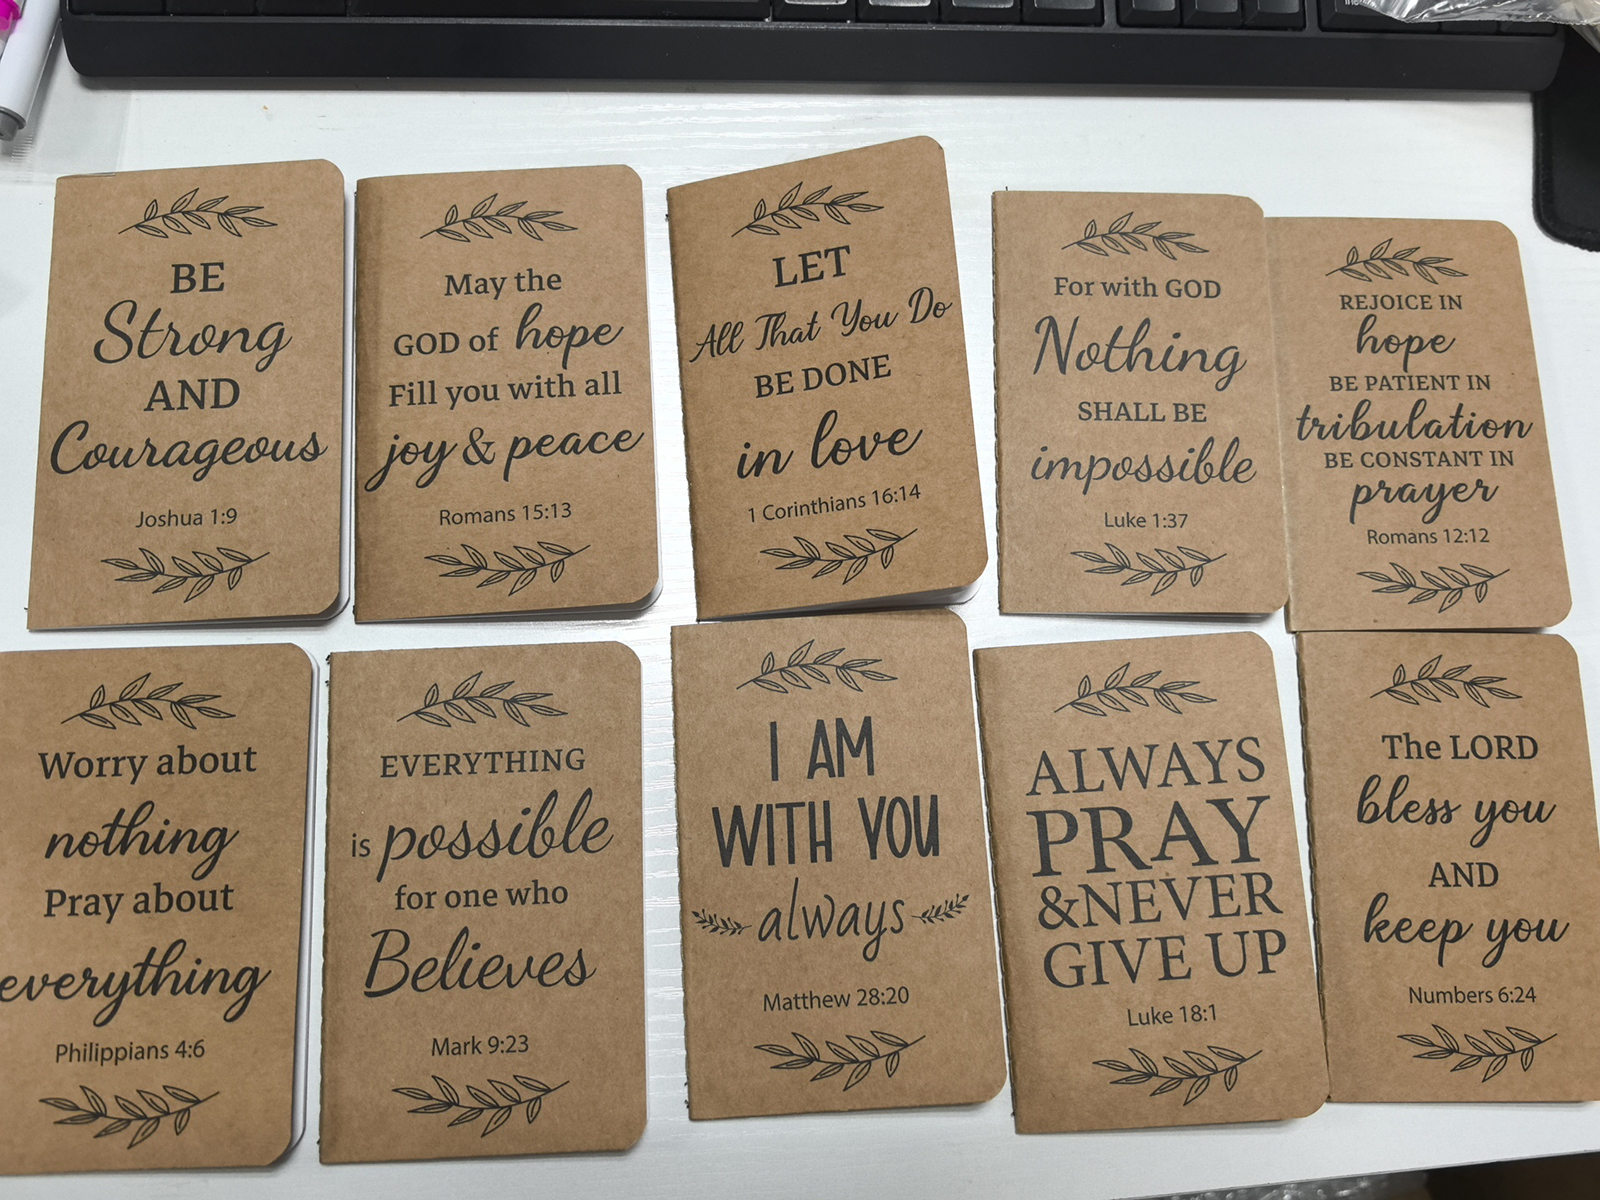 BE
Strong
AND
Courageous
Joshua 1:9
May the
GOD of hope
Fill you with all
joy & peace
Romans 15:13
LET
All That You Do
BE DONE
in love
1 Corinthians 16:14
For with GOD
Nothing
SHALL BE
impossible
Luke 1:37
REJOICE IN
hope
BE PATIENT IN
tribulation
BE CONSTANT IN
prayer
Romans 12:12
Worry about
nothing
Pray about
everything
Philippians 4:6
EVERYTHING
is possible
for one who
Believes
Mark 9:23
I AM
WITH YOU
always
Matthew 28:20
ALWAYS
PRAY
&NEVER
GIVE UP
Luke 18:1
The LORD
bless you
AND
keep you
Numbers 6:24